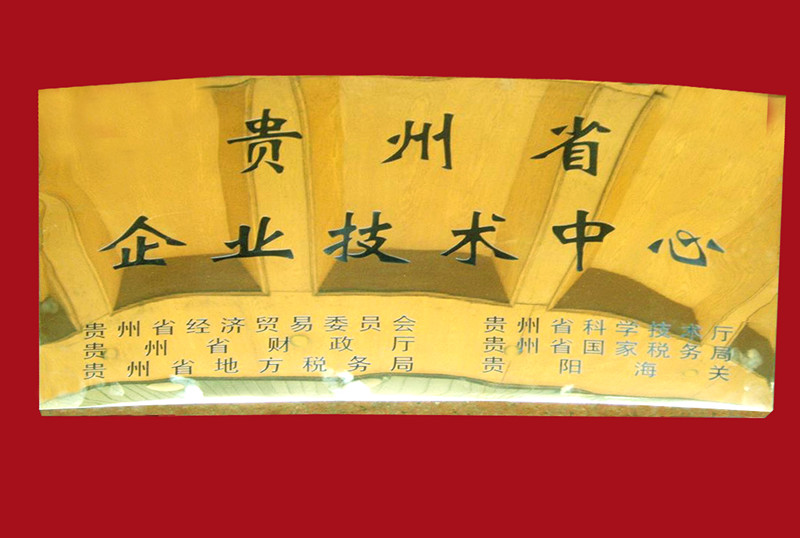 贵州省
企业技术中心
贵州省经济贸易委员会 贵州省科学技术厅
贵州省财政厅 贵州省国家税务局
贵州省地方税务局 贵阳海关